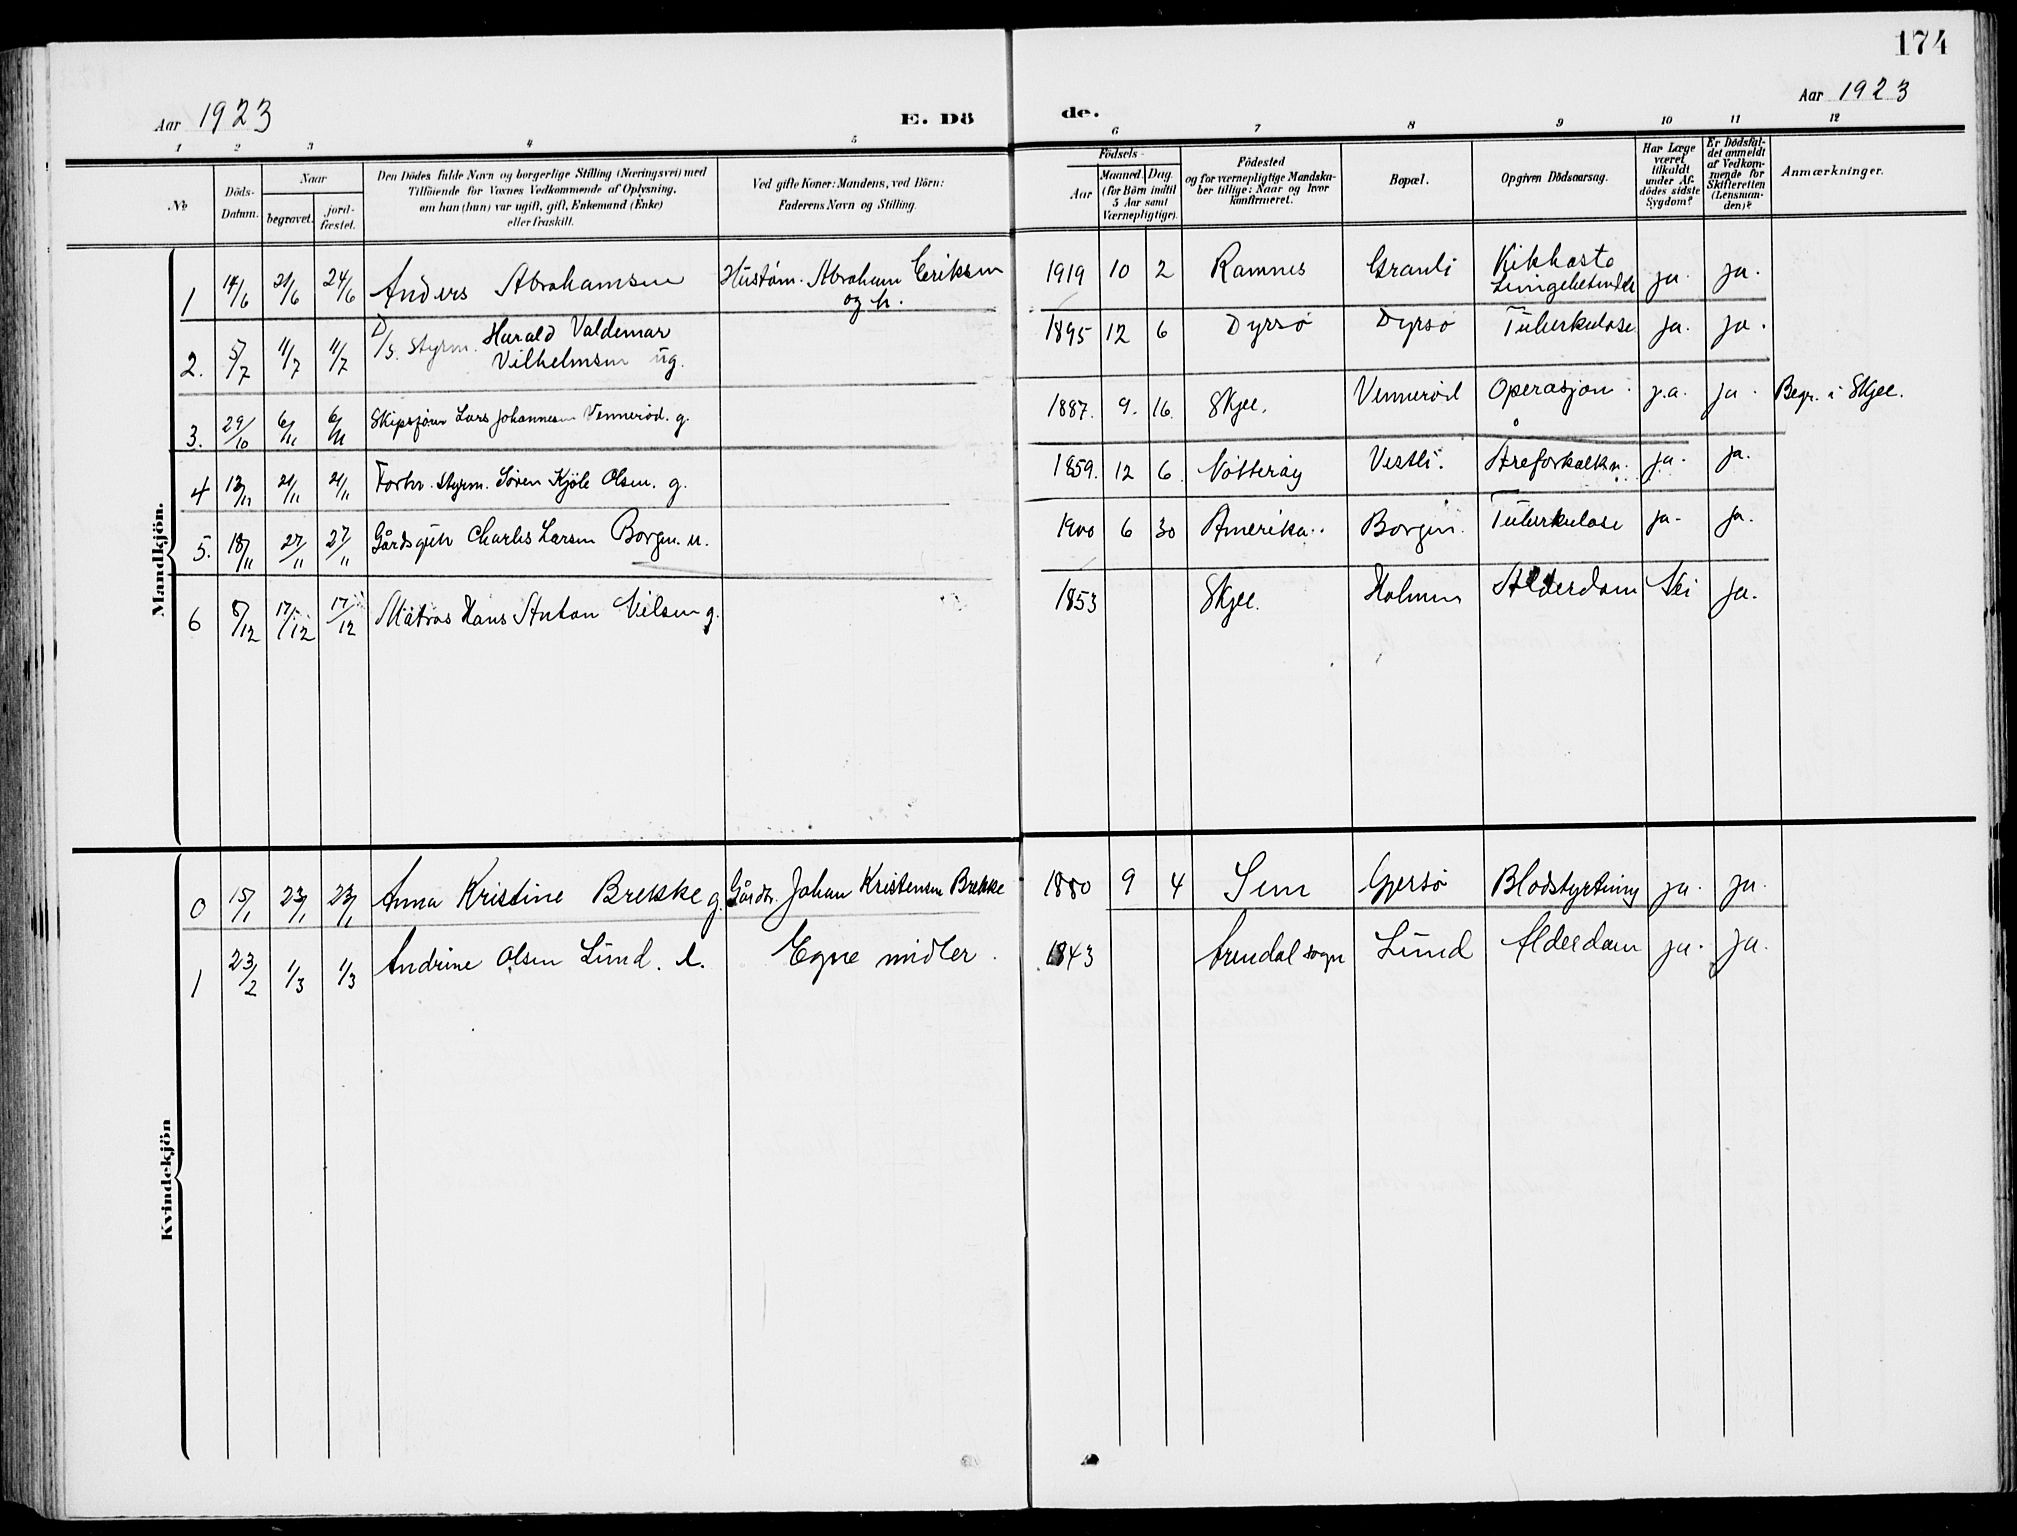 174
Aar 1923
E. Dö
de.
Aar 1923
1 2 3 4 5 6 7 8 9 10 11 12
No
Döds-Datum.
Naar
begravet.
jord-fæstet.
Den Dödes fulde Navn og borgerlige Stilling (Næringsvei) med
Tilföiende for Voxnes Vedkommende af Oplysning,
om han (hun) var ugift, gift, Enkemand (Enke)
eller fraskilt.
Ved gifte Koner: Mandens, ved Börn:
Faderens Navn og Stilling.
Födsels-
Aar
Maaned. Dag.
(for Börn indtil
5 Aar samt
Værnepligtige).
Födested
og for værnepligtige Mandska-
ber tillige: Naar og hvor
konfirmeret.
Bopæl.
Opgiven Dödsaarsag.
Har Læge
været
tilkaldt
under Af-
dödes sidste
Sygdom?
Er Dödsfal-
det anmeldt
af Vedkom-
mende for
Skifteretten
(Lensman-
den)?
Anmærkninger.
Mandkjön.
1 14/6 21/6 24/6 Anders Abrahamsen Hustøm. Abraham Eriksen og h. 1919 10 2 Ramnes Granli Kikhoste ja. ja.
2. 5/7 11/7 11/7 D/S. Styrm. Harald Valdemar
Vilhelmsen ug. 1895 12 6 Dyrsø Dyrsø Tuberkulose ja. ja.
3. 29/10 6/11 6/11 Skipsfører Lars Johannesen Vennerød. g. 1887. 9. 16. Skjee. Vennerød Operasjon. ja. ja. Begr. i Skjee.
4 13/11 21/11 21/11 Forhv. Styrm. Søren Kjøle Olsen. g. 1859. 12 6. Nøtterøy Vestli. Åreforkalkn. ja. ja.
5. 18/11 27/11 27/11 Gårdsgut Charles Larsen Borgen. u. 1900 6 30 Amerika. Borgen. Tuberkulose ja. ja.
6 8/12 17/12 17/12 Matros Hans Anton Nilsen g. 1853 Skjee. Holmen Alderdom Nei ja.
Kvindekjön
0 15/1 23/1 23/1 Anna Kristine Brekke g. Gårdbr. Johan Kristensen Brekke 1880 9 4 Sem Gjersø Blodstyrtning ja. ja.
1 23/2 1/3 1/3 Andrine Olsen Lund. e. Egne midler. 1843 Arendal sogn Lund Alderdom ja. ja.